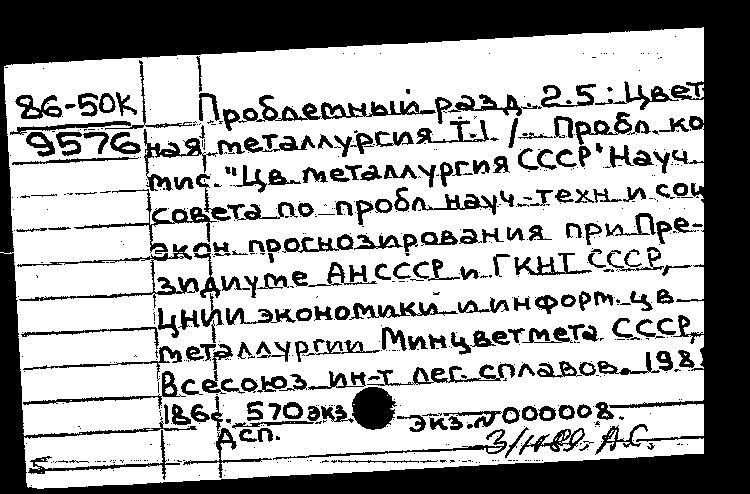 86-50К
9576
Проблемный разд. 2.5: Цвет
ная металлургия Т.1 /.. Пробл. ко
мис. "Цв. металлургия СССР" Науч.
совета по пробл. науч.-техн. и соц
экон. прогнозирования при Пре-
зидиуме АНСССР и ГКНТ СССР,
ЦНИИ экономики и информ. цв.
металлургии Минцветмета СССР,
Всесоюз. ин-т лег. сплавов. 198
186с. 570 экз. экз. № 000008.
ДСП.